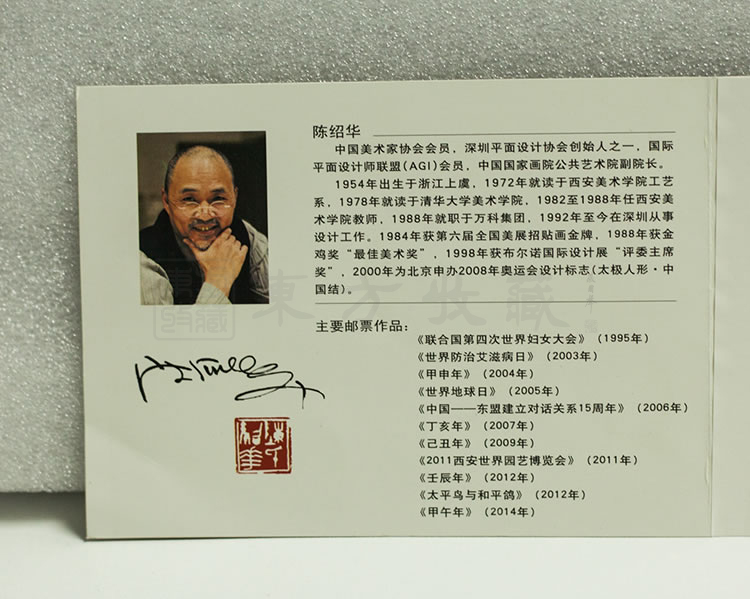 陈绍华
中国美术家协会会员，深圳平面设计协会创始人之一，国际
平面设计师联盟(AGI)会员，中国国家画院公共艺术院副院长。
1954年出生于浙江上虞，1972年就读于西安美术学院工艺
系，1978年就读于清华大学美术学院，1982至1988年任西安美
术学院教师，1988年就职于万科集团，1992年至今在深圳从事
设计工作。1984年获第六届全国美展招贴画金牌，1988年获金
鸡奖“最佳美术奖”，1998年获布尔诺国际设计展“评委主席
奖”，2000年为北京申办2008年奥运会设计标志(太极人形·中
国结)。
東方收藏
主要邮票作品：
《联合国第四次世界妇女大会》（1995年）
《世界防治艾滋病日》（2003年）
《甲申年》（2004年）
《世界地球日》（2005年）
《中国——东盟建立对话关系15周年》（2006年）
《丁亥年》（2007年）
《己丑年》（2009年）
《2011西安世界园艺博览会》（2011年）
《壬辰年》（2012年）
《太平鸟与和平鸽》（2012年）
《甲午年》（2014年）